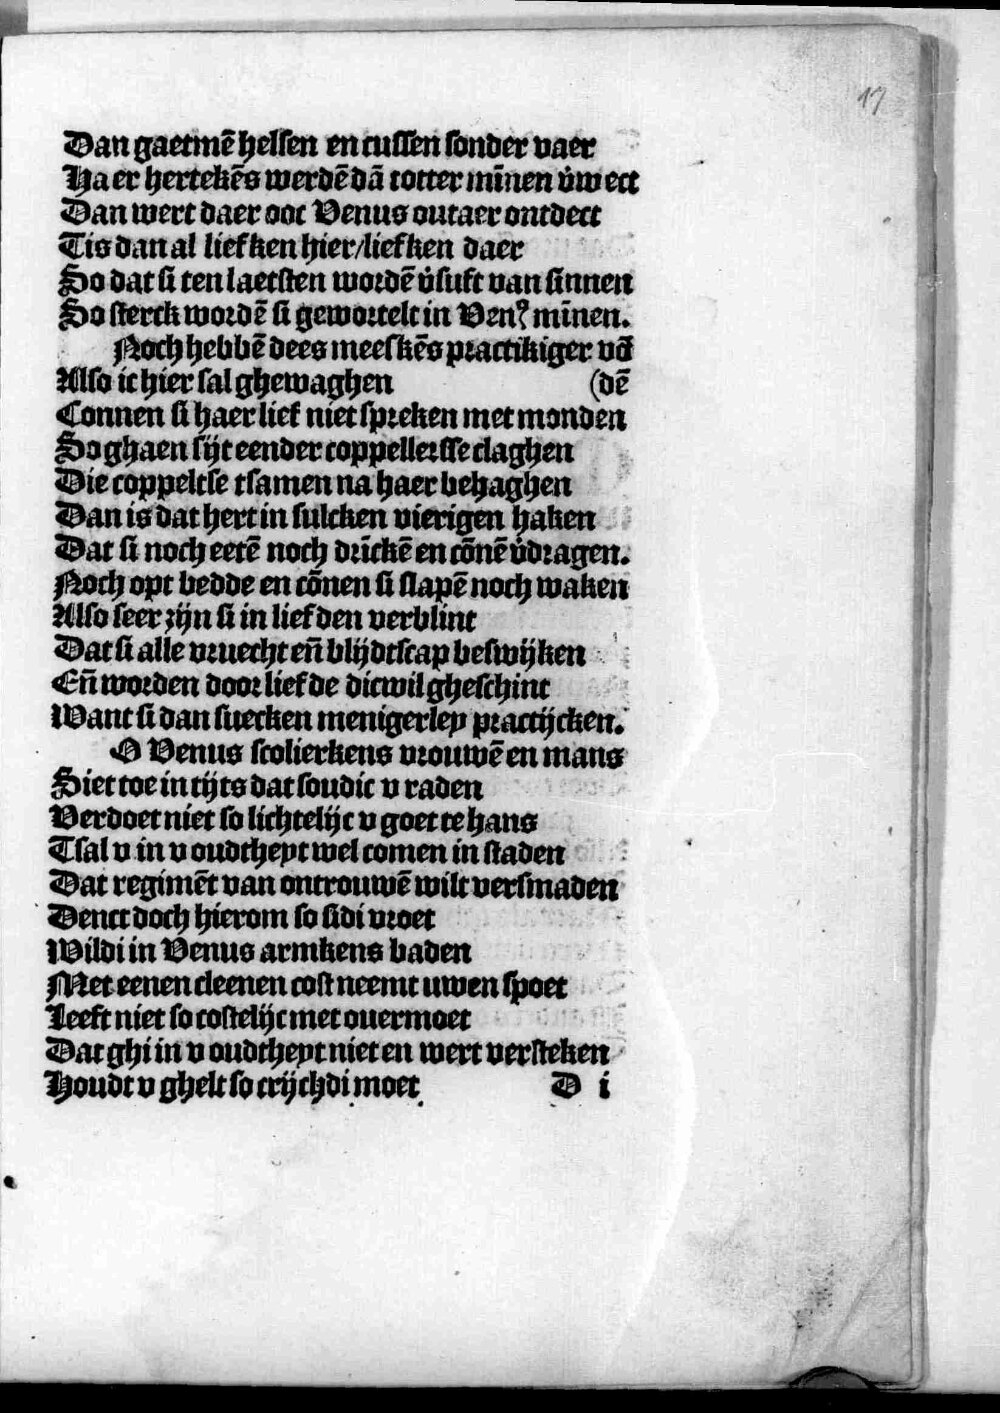 17
Dan gaetmē helsen en cussen sonder vaer
Haer hertekēs werdē dā totter mīnen v̄wect
Dan wert daer ooc Venus outaer ontdect
Tis dan al liefken hier/liefken daer
So dat si ten laetsten wordē v̄suft van sinnen
So sterck wordē si gewortelt in Venꝰ mīnen.
Noch hebbē dees meeskēs practikiger vō
Also ic hier sal ghewaghen (dē
Connen si haer lief niet spreken met monden
So ghaen sijt eender coppellersse claghen
Die coppeltse tsamen na haer behaghen
Dan is dat hert in sulcken vierigen haken
Dat si noch eetē noch drīckē en cōnē v̄dragen.
Noch opt bedde en cōnen si slapē noch waken
Also seer zijn si in liefden verblint
Dat si alle vruecht en̄ blijdtscap beswijken
En̄ worden door liefde dicwil gheschint
Want si dan suecken menigerley practijcken.
O Venus scolierkens vrouwē en mans
Siet toe in tijts dat soudic v raden
Verdoet niet so lichtelijc v goet te hans
Tsal v in v oudtheyt wel comen in staden
Dat regimēt van ontrouwē wilt versmaden
Denct doch hierom so sidi vroet
Wildi in Venus armkens baden
Met eenen cleenen cost neemt uwen spoet
Leeft niet so costelijc met ouermoet
Dat ghi in v oudtheyt niet en wert versteken
Houdt v ghelt so crijchdi moet D i